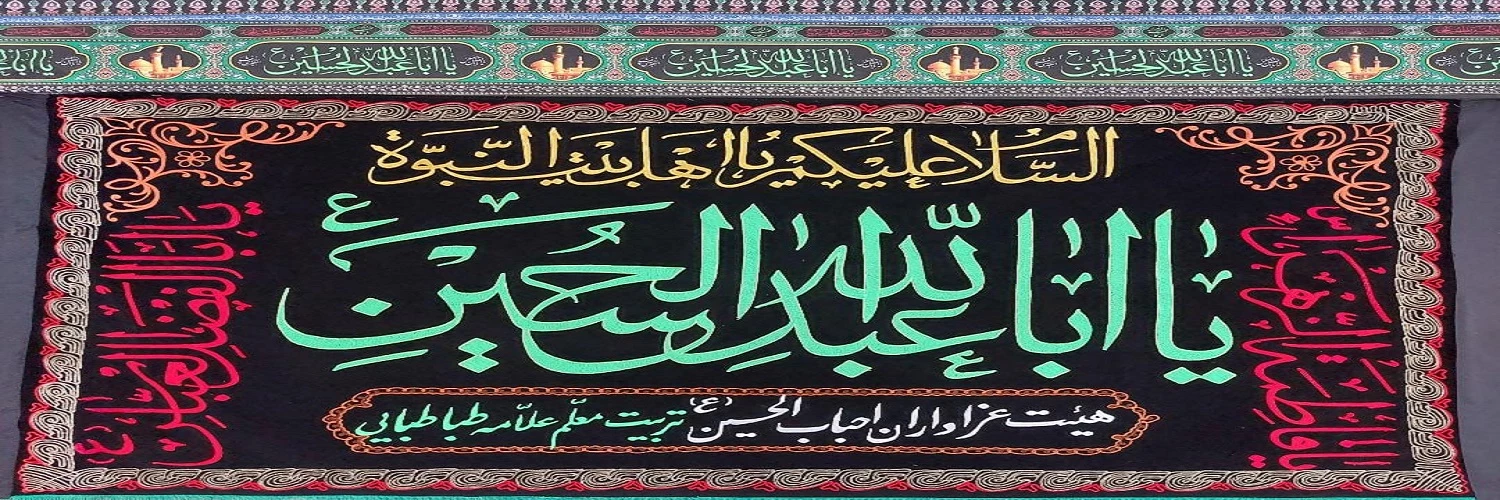 یا اباعبدالله الحسین ع
یا اباعبدالله الحسین ع
یا اباعبدالله الحسین ع
السَّلامُ عَلَیکُم یا اَهلَ بَیتِ النُّبُوَّة
یا اَبا عَبدِاللّٰهِ الحُسَینِ ع
یا فاطمة الزهراء
یا اباالفضل العباس (ع)
هیئت عزاداران احباب الحسین (ع) تربیت معلّم علّامه طباطبایی